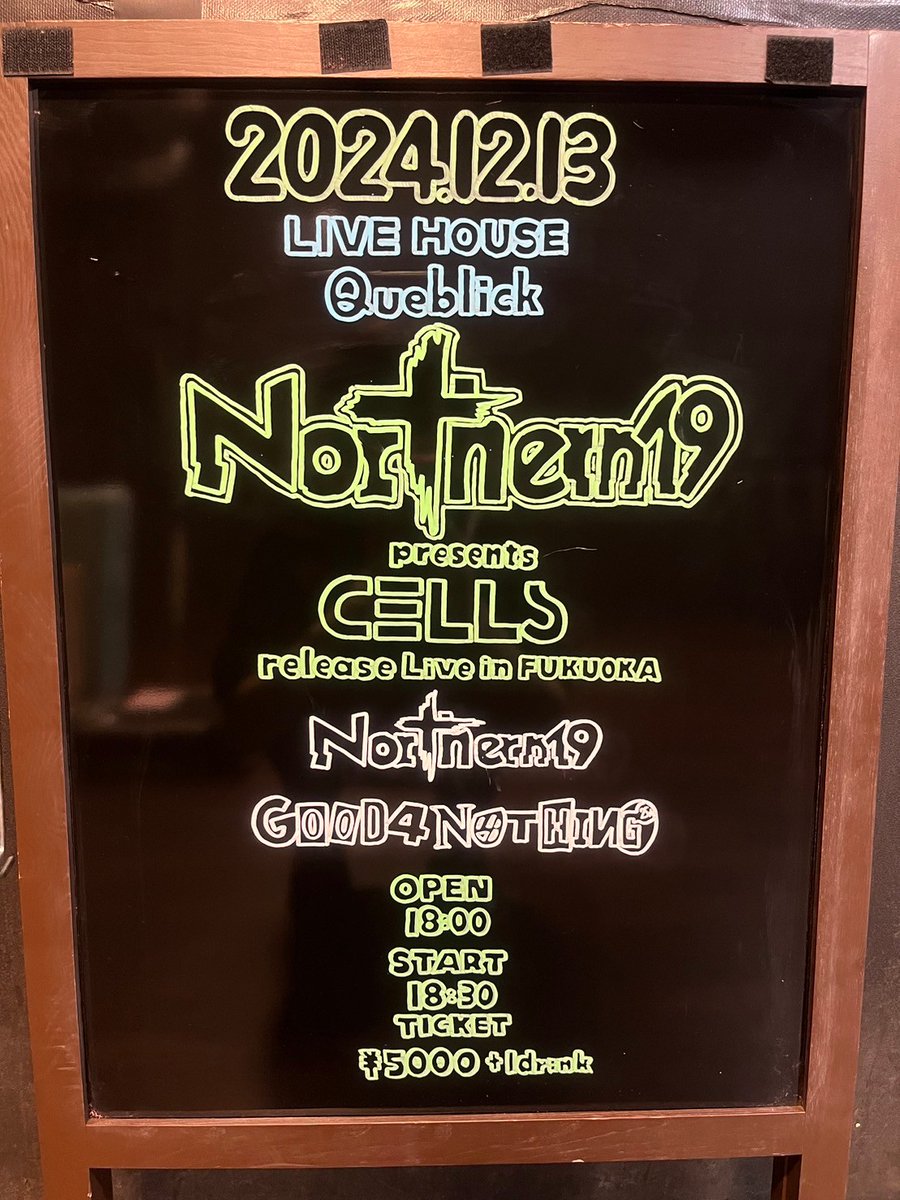 2024.12.13
LIVE HOUSE
Queblick
Northern19
presents
CELLS
release Live in FUKUOKA
Northern19
GOOD4NOTHING
OPEN
18:00
START
18:30
TICKET
¥5000 +1drink